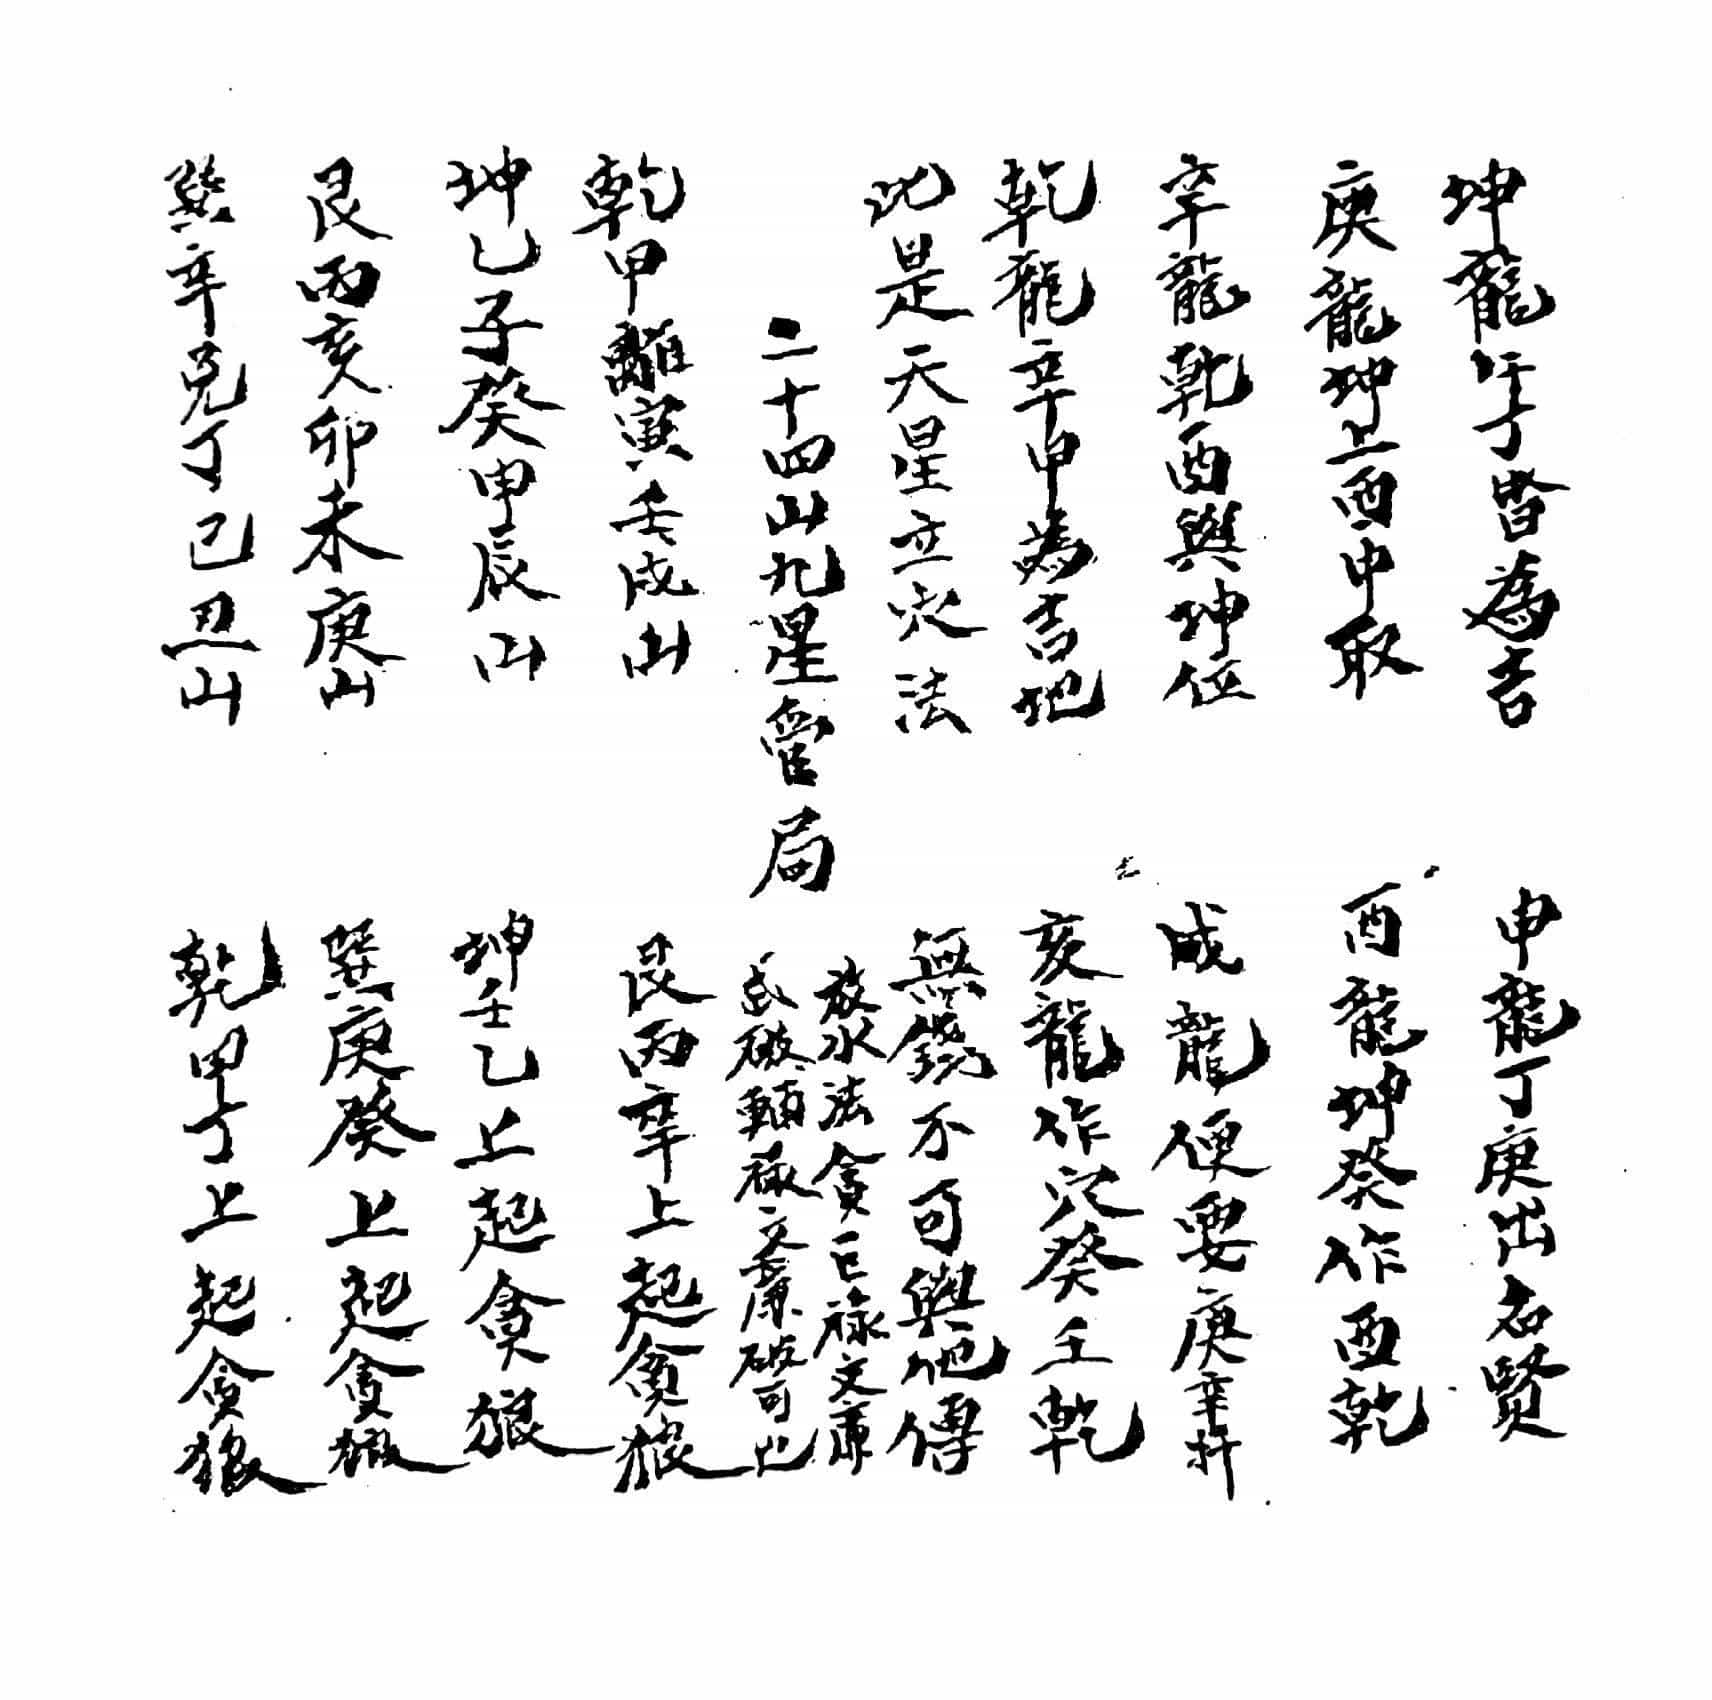 坤龍午丁皆為吉
申龍丁庚出名賢
庚龍坤上酉申取
酉龍坤癸作酉乾
辛龍乾酉與坤位
戍龍便要庚辛扦
乾龍辛申為吉地
亥龍作穴癸壬乾
此是天星立穴法
無錢不可與他傳
二十四山九星管局
放水法貪巨祿文廉
武破輔祿文廉破可也
乾甲離寅壬戍山
艮丙辛上起貪狼
坤乙子癸申辰山
坤壬乙上起貪狼
艮丙亥卯未庚山
巽庚癸上起貪狼
巽辛兌丁巳丑山
乾甲丁上起貪狼